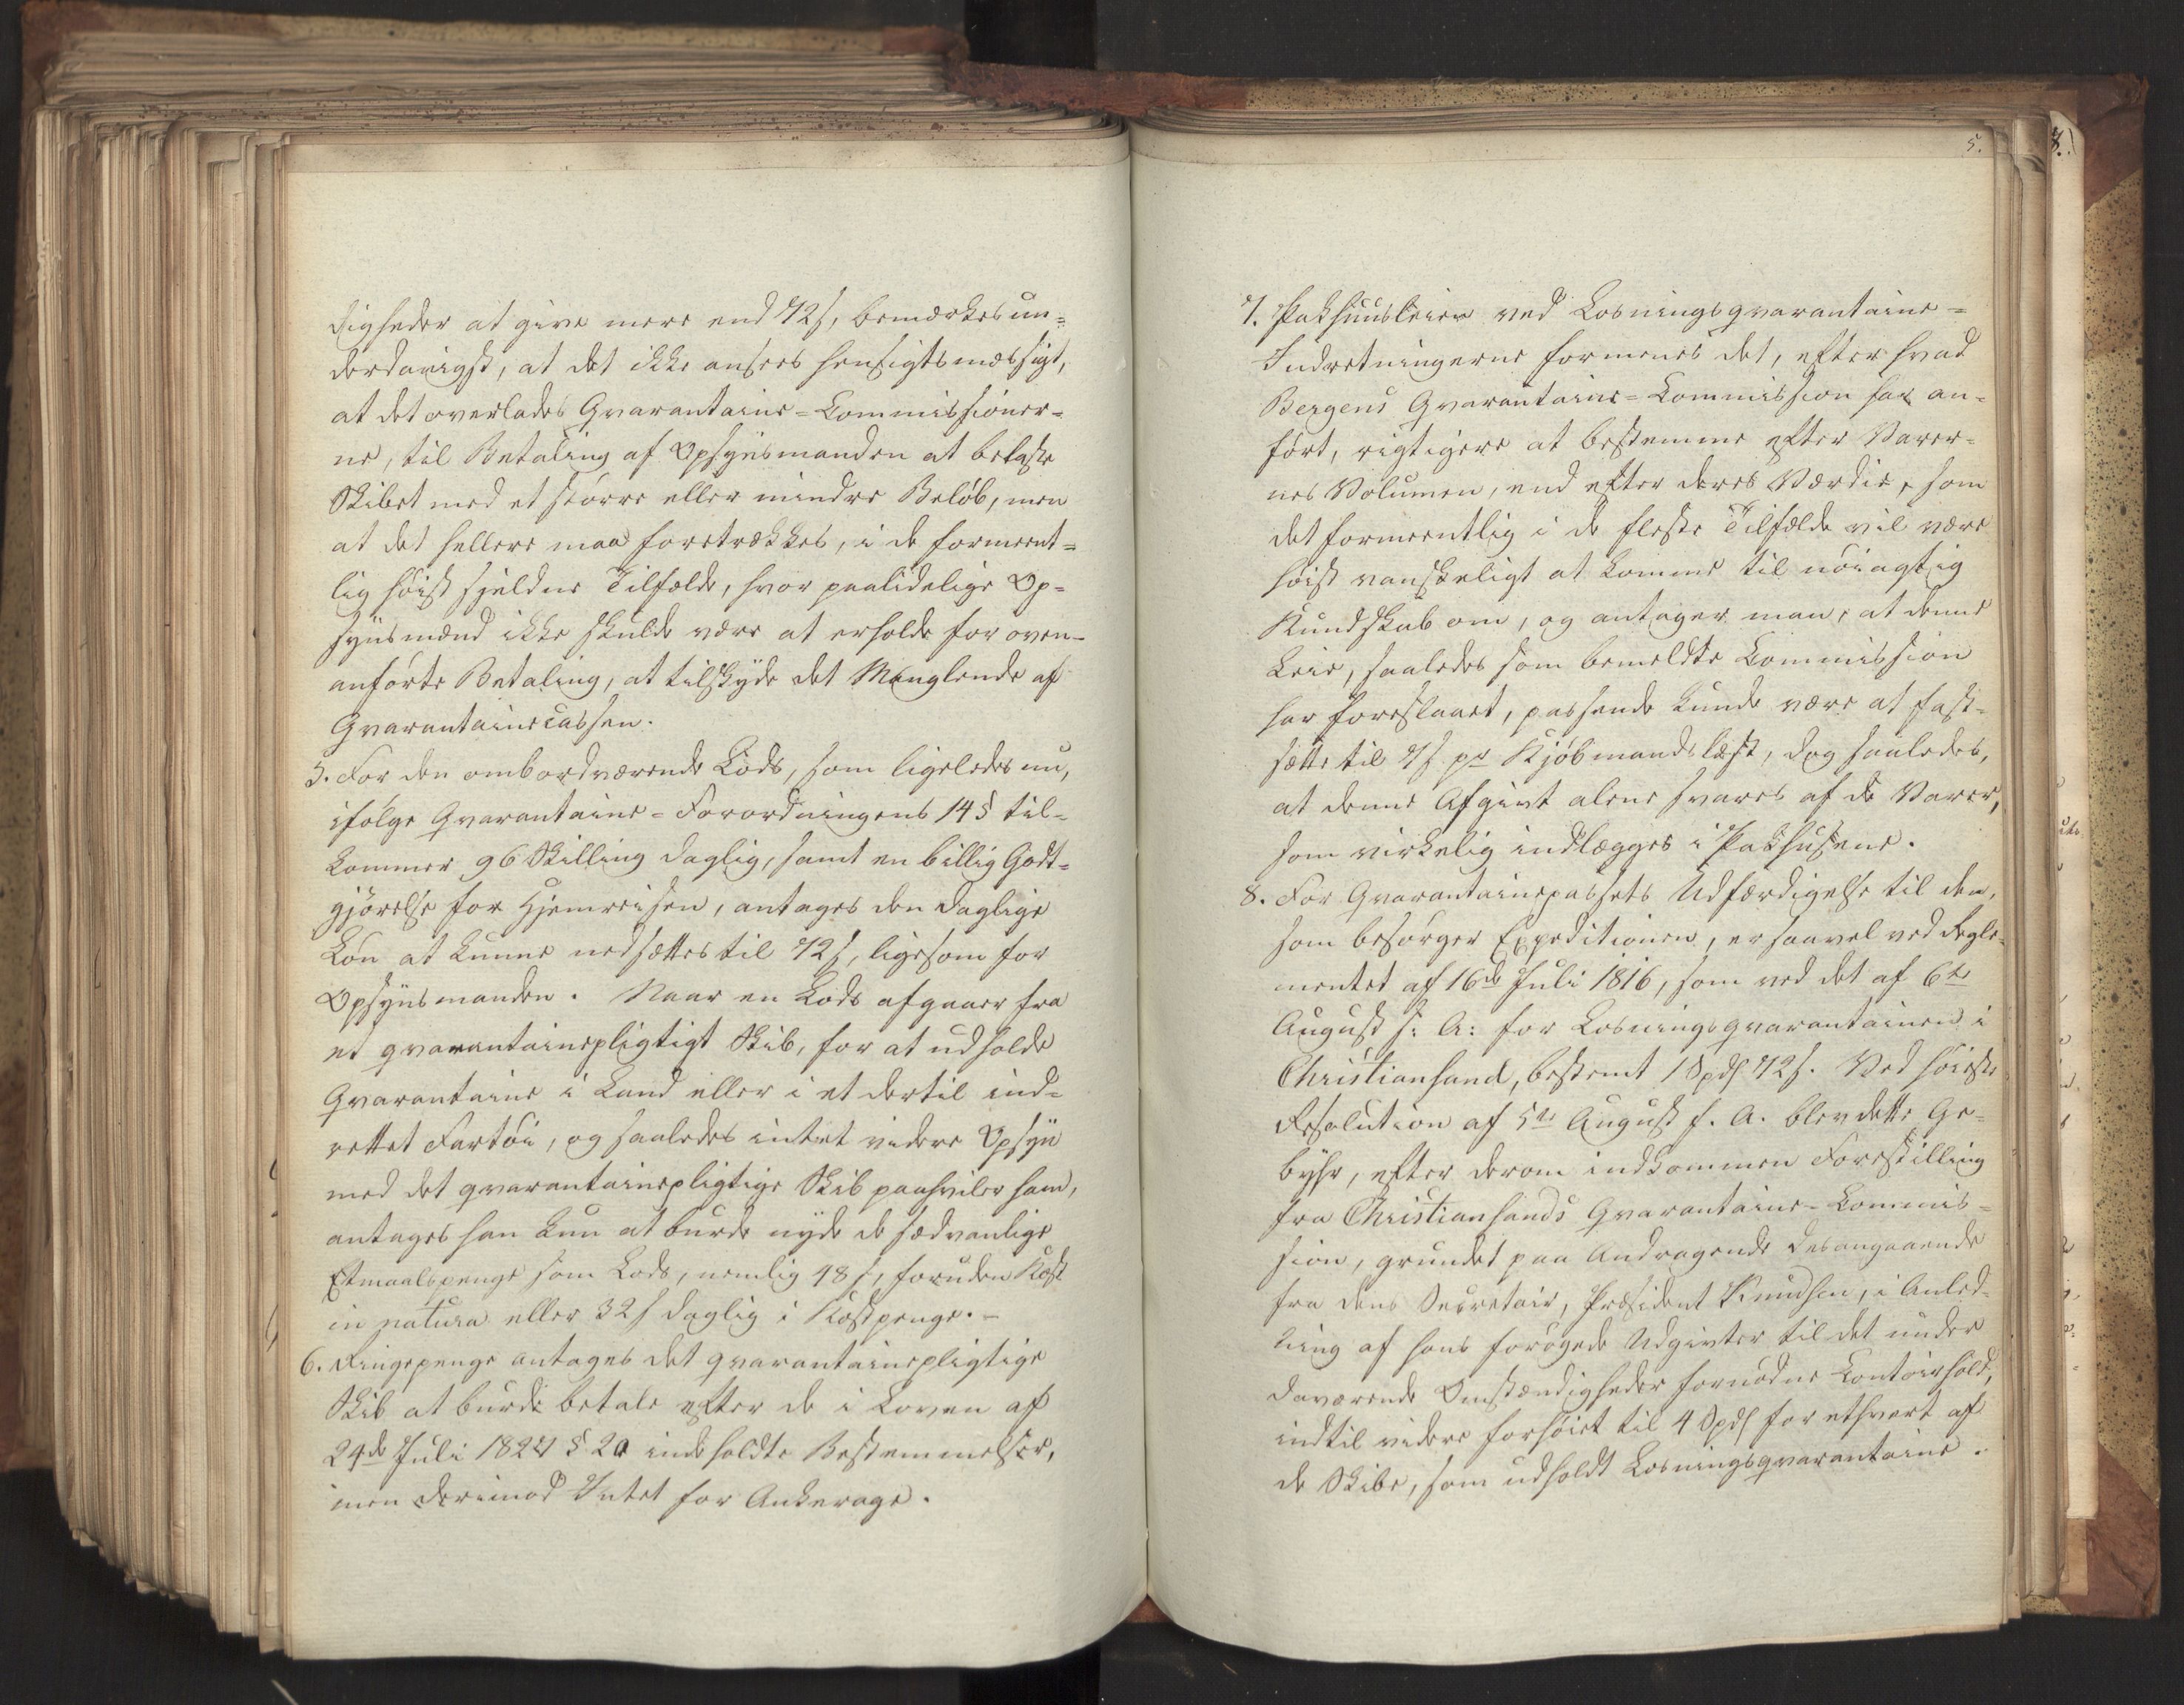 digheder at give mere end 72 s, bemærkes un-
derdanigst, at det ikke ansees hensigtsmæssigt,
at det overlades Qvarantaine-Commissioner-
ne, til Betaling af Opsynsmanden at belaste
Skibet med et større eller mindre Beløb, men
at det hellere maa foretrækkes, i de formeent-
lig høist sjeldne Tilfælde, hvor paalidelige Op-
synsmænd ikke skulde være at erholde for oven-
anførte Betaling, at tilskyde det Manglende af
Qvarantainecassen.
5. For den ombordværende Lods, som ligeledes nu,
ifølge Qvarantaine-Forordningens 14 § til-
kommer 96 Skilling daglig, samt en billig Godt-
gjørelse for Hjemreisen, antages den daglige
Løn at kunne nedsættes til 72 s, ligesom for
Opsynsmanden. Naar en Lods afgaaer fra
et qvarantainepligtigt Skib, for at udholde
Qvarantaine i Land eller i et dertil ind-
rettet Fartøi, og saaledes intet videre Opsyn
med det qvarantainepligtige Skib paahviler ham,
antages han kun at burde nyde de sædvanlige
Etmaalspenge som Lods, nemlig 48 s, foruden Kost
in natura eller 32 s daglig i Kostpenge. -
6. Ringepenge antages det qvarantainepligtige
Skib at burde betale efter de i Loven af
24de Juli 1827 § 20 indeholdte Bestemmelser,
men derimod Intet for Ankerage.
5.
7. Pakhuusleien ved Losningsqvarantaine-
Indretningerne formenes det, efter hvad
Bergens Qvarantaine-Commission har an-
ført, rigtigere at bestemme efter Varer-
nes Volumen, end efter deres Værdie, som
det formeentlig i de fleste Tilfælde vil være
høist vanskeligt at komme til nøiagtig
Kundskab om, og antager man, at denne
Leie, saaledes som bemeldte Commission
har foreslaaet, passende kunde være at fast-
sætte til 7 s pr Kjøbmandslæst, dog saaledes,
at denne Afgivt alene svares af de Varer,
som virkelig indlægges i Pakhusene.
8. For Qvarantainepassets Udfærdigelse til den,
som besørger Expeditionen, er saavel ved Regle-
mentet af 16de Juli 1816, som ved det af 6te
August s: A: for Losningsqvarantainen i
Christiansand, bestemt 1 Spd 72 s. Ved høieste
Resolution af 5te August f. A. blev dette Ge-
byhr, efter derom indkommen Forestilling
fra Christiansands Qvarantaine-Commis-
sion, grundet paa Andragende desangaaende
fra dens Secretair, Præsident Knudsen, i Anled-
ning af hans forøgede Udgivter til det under
daværende Omstændigheder fornødne Contoirhold,
indtil videre forhøiet til 4 Spd for ethvert af
de Skibe, som udholdt Losningsqvarantaine.